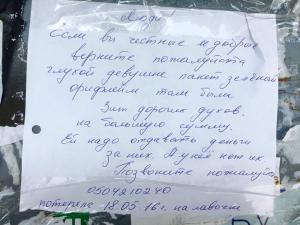 Люди
Если вы честные и добрые
верните пожалуйста
глухой девушке пакет зеленый
орифлейм там были
3шт дорогих духов.
на большую сумму.
Ей надо отдавать деньги
за них. А у неё нет их
Позвоните пожалуй
0504210240
потеряла 18.05.16 г. на лавочке